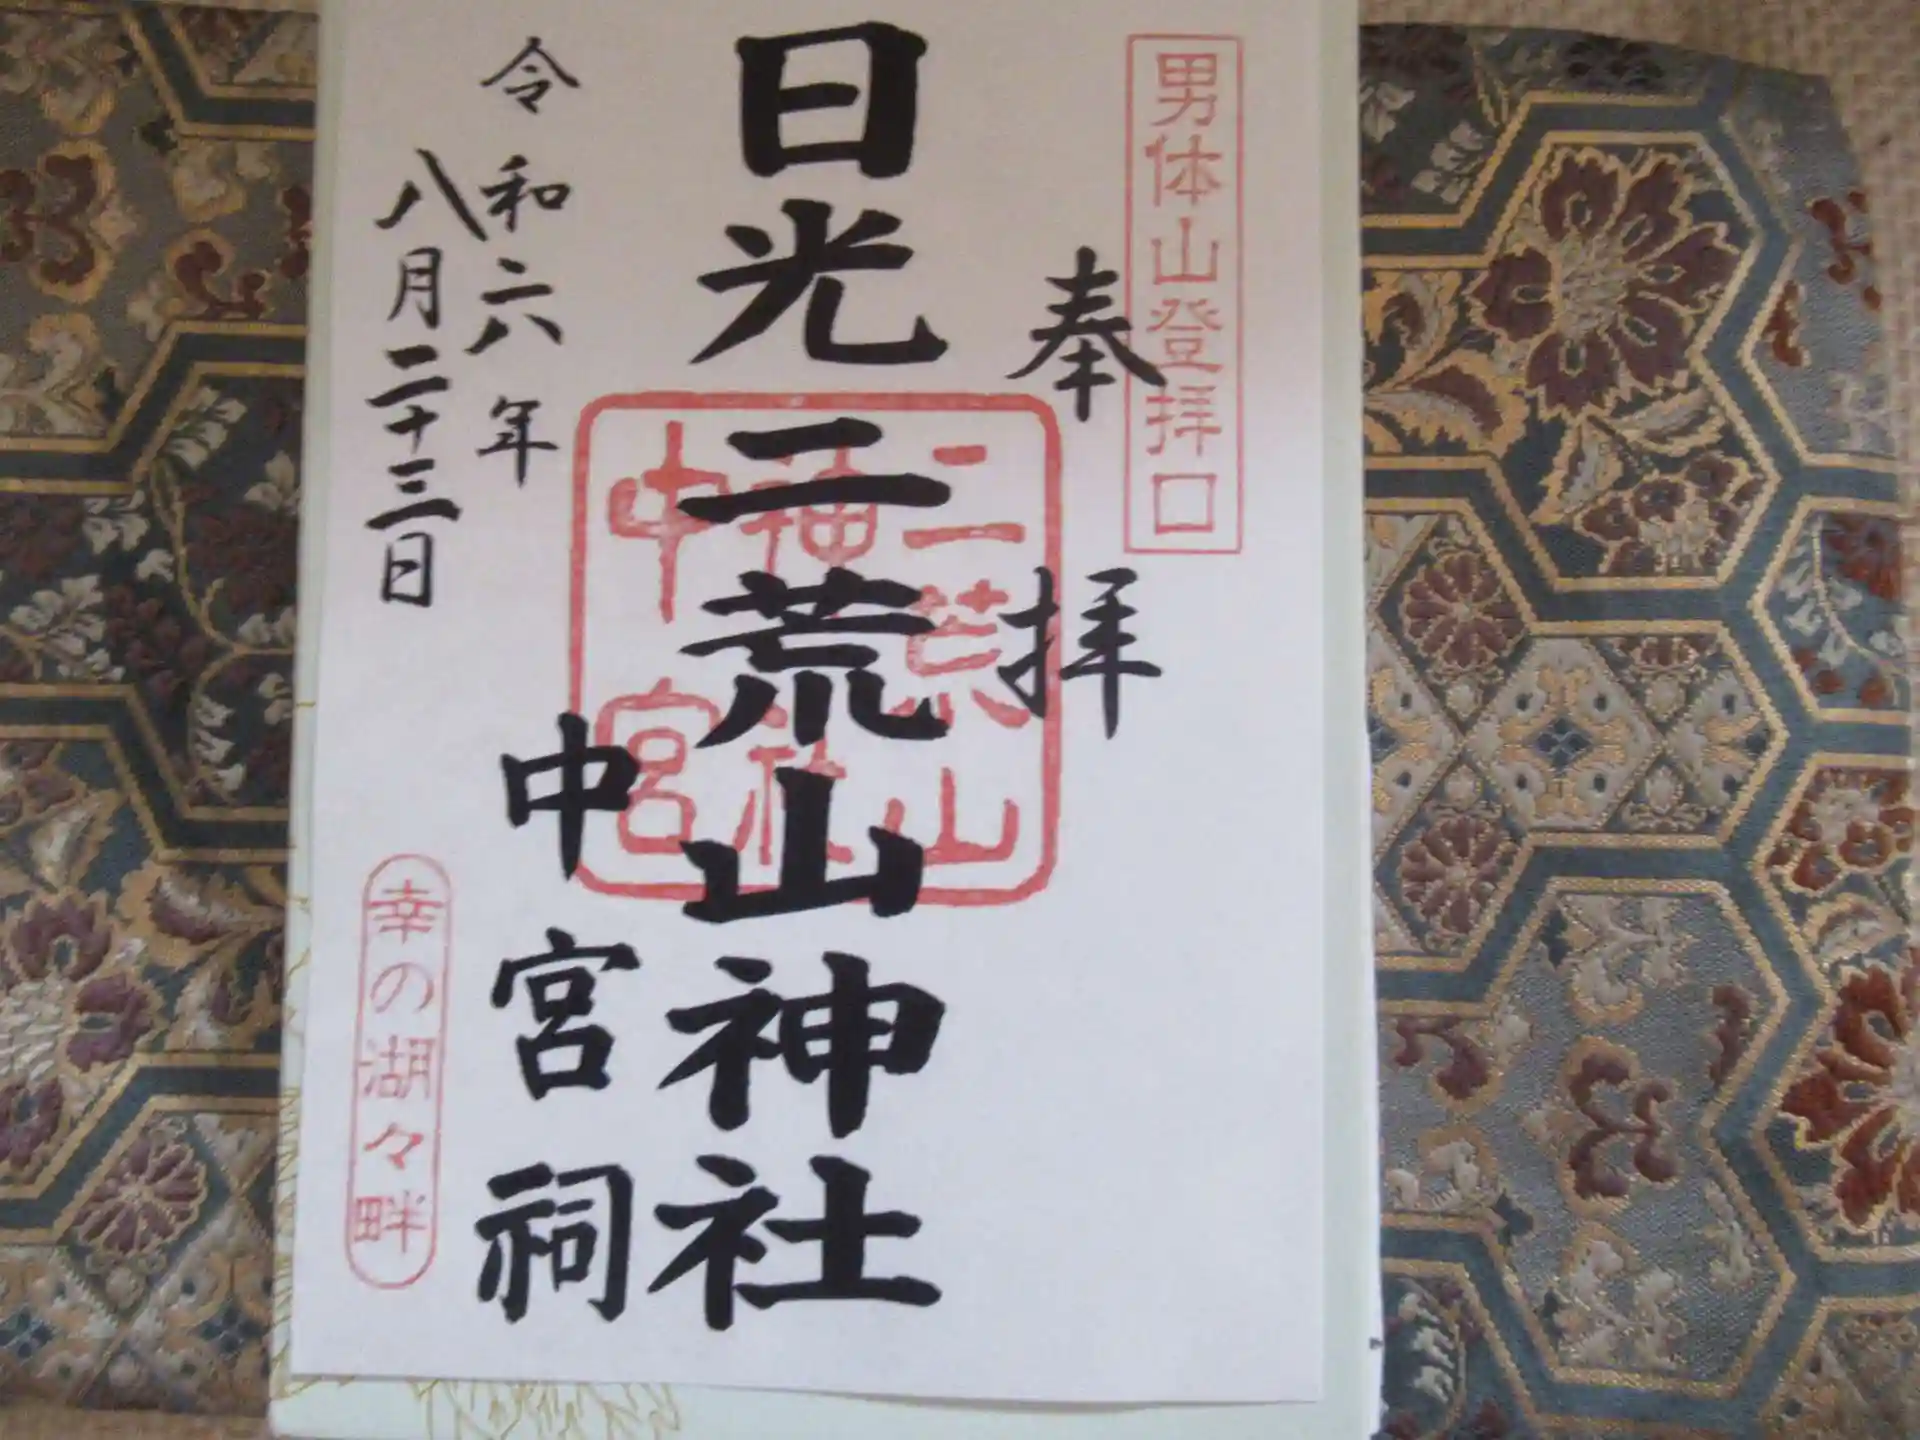 男体山登拝口
奉拝
日光二荒山神社
中宮祠
令和六年
八月二十三日
二荒山
神社
中宮
幸の湖々畔